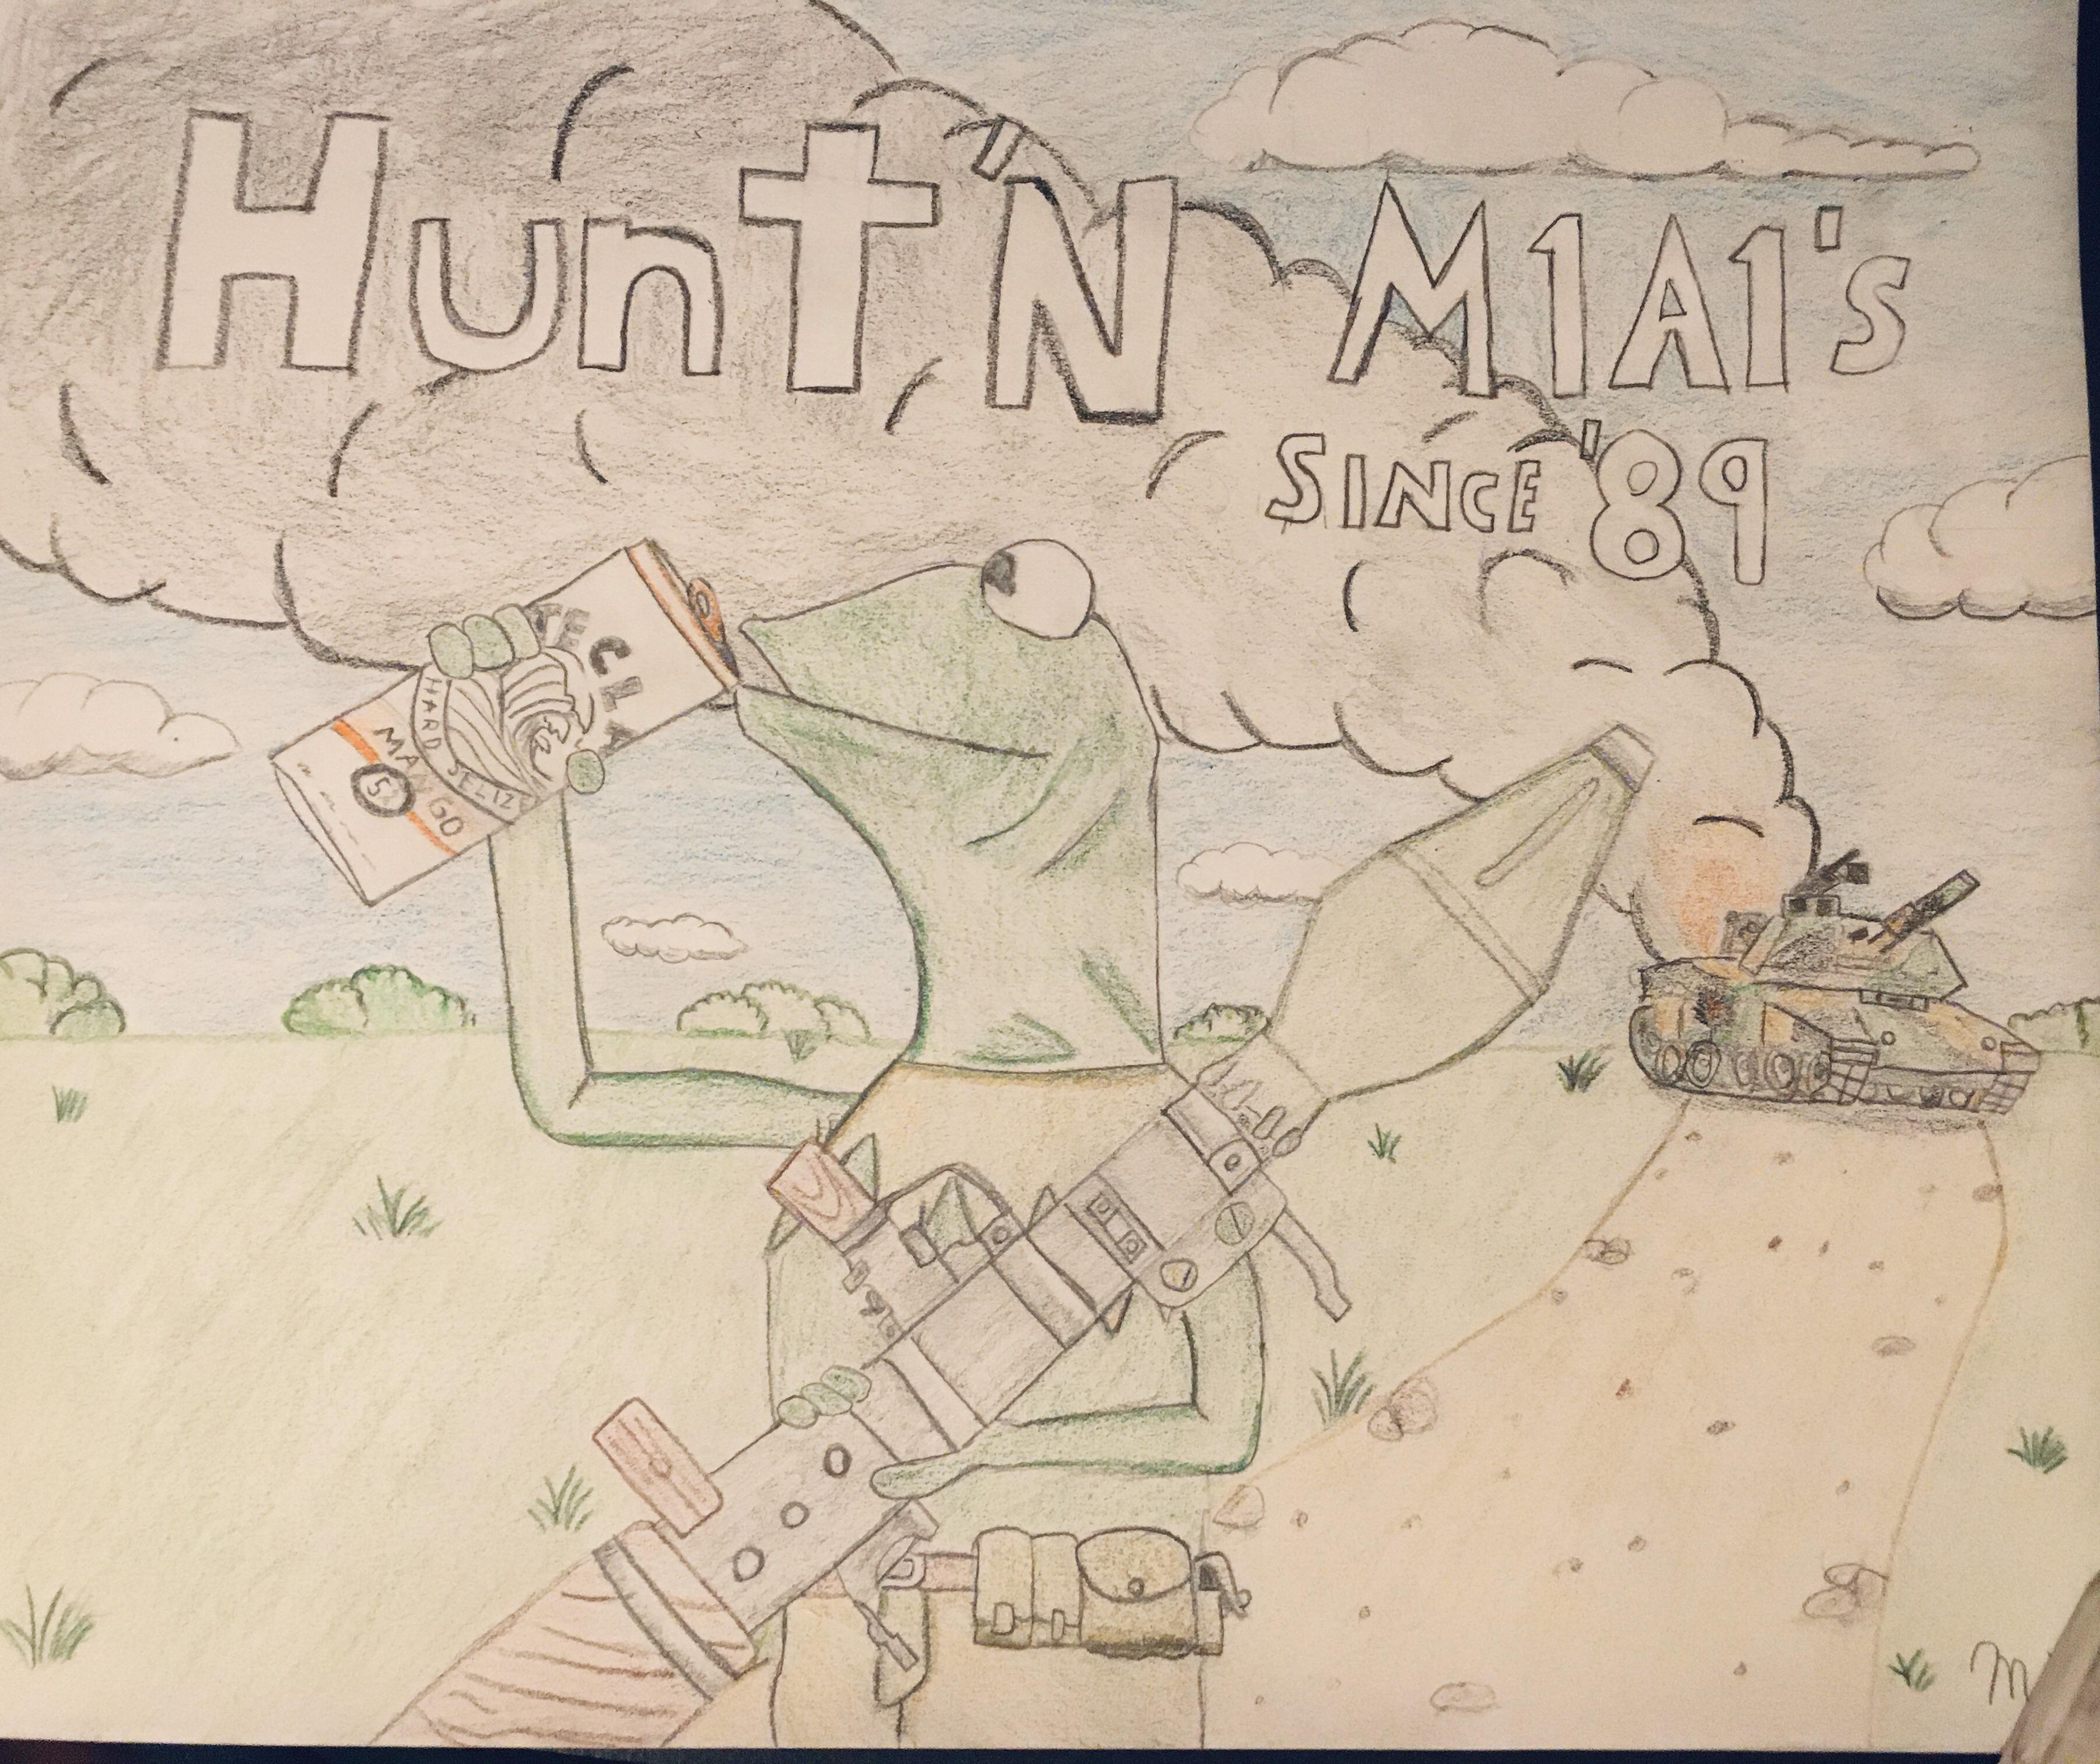 Hunt'N M1A1's
SINCE '89
CLA
HARD SELTZ
MANGO
5